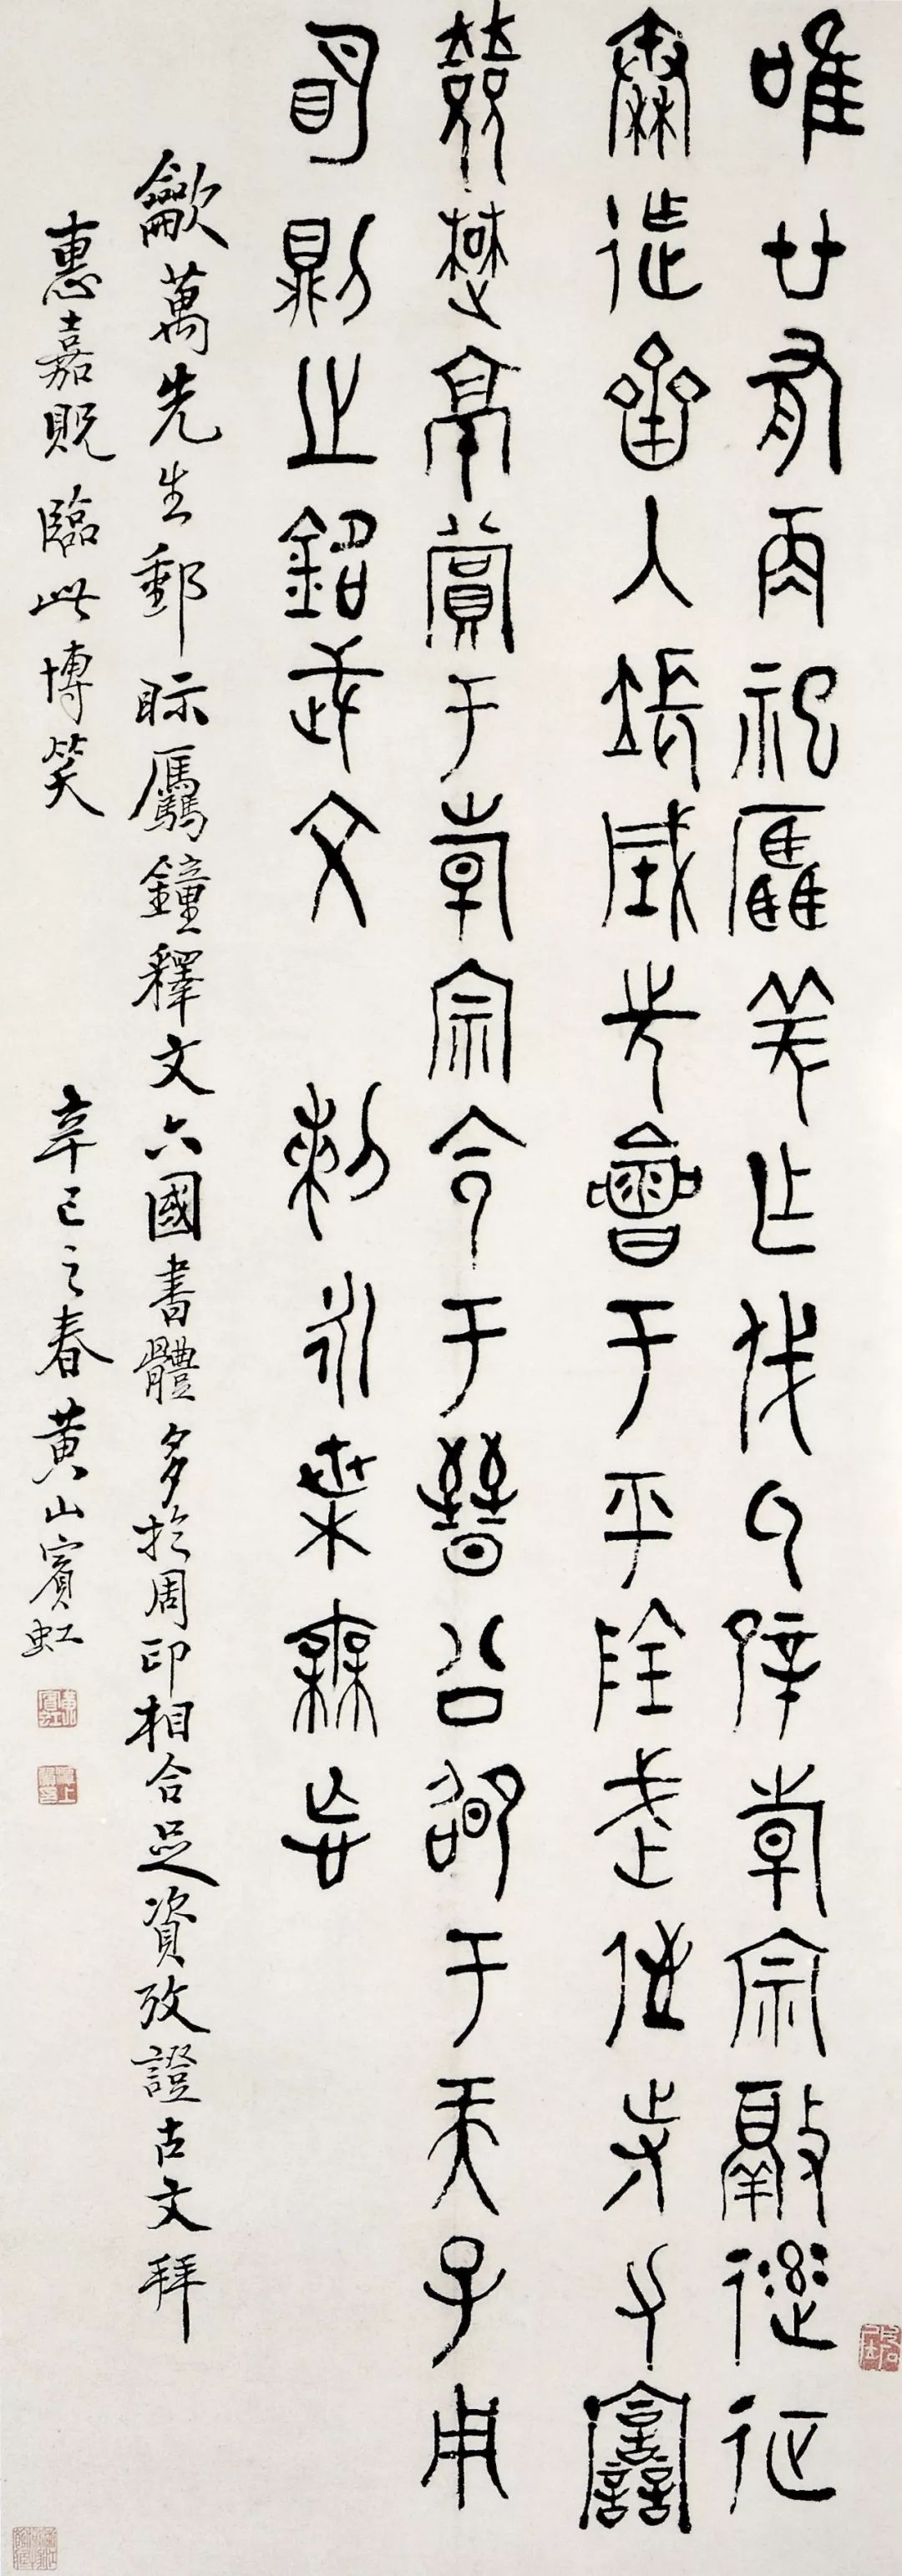 唯廿有再祀驫羌乍伐氒辟倝宗敲達征
秦迮齊入長城先會于平陰武侄寺力譶
敚楚京賞于倝宗令于晉公卲于天子用
明則之銘武文剌永枼無忘
龡萬先生郵眎驫鐘釋文六國書體多於周印相合足資攷證古文拜
惠嘉貺臨此博笑 辛巳之春黃山賓虹